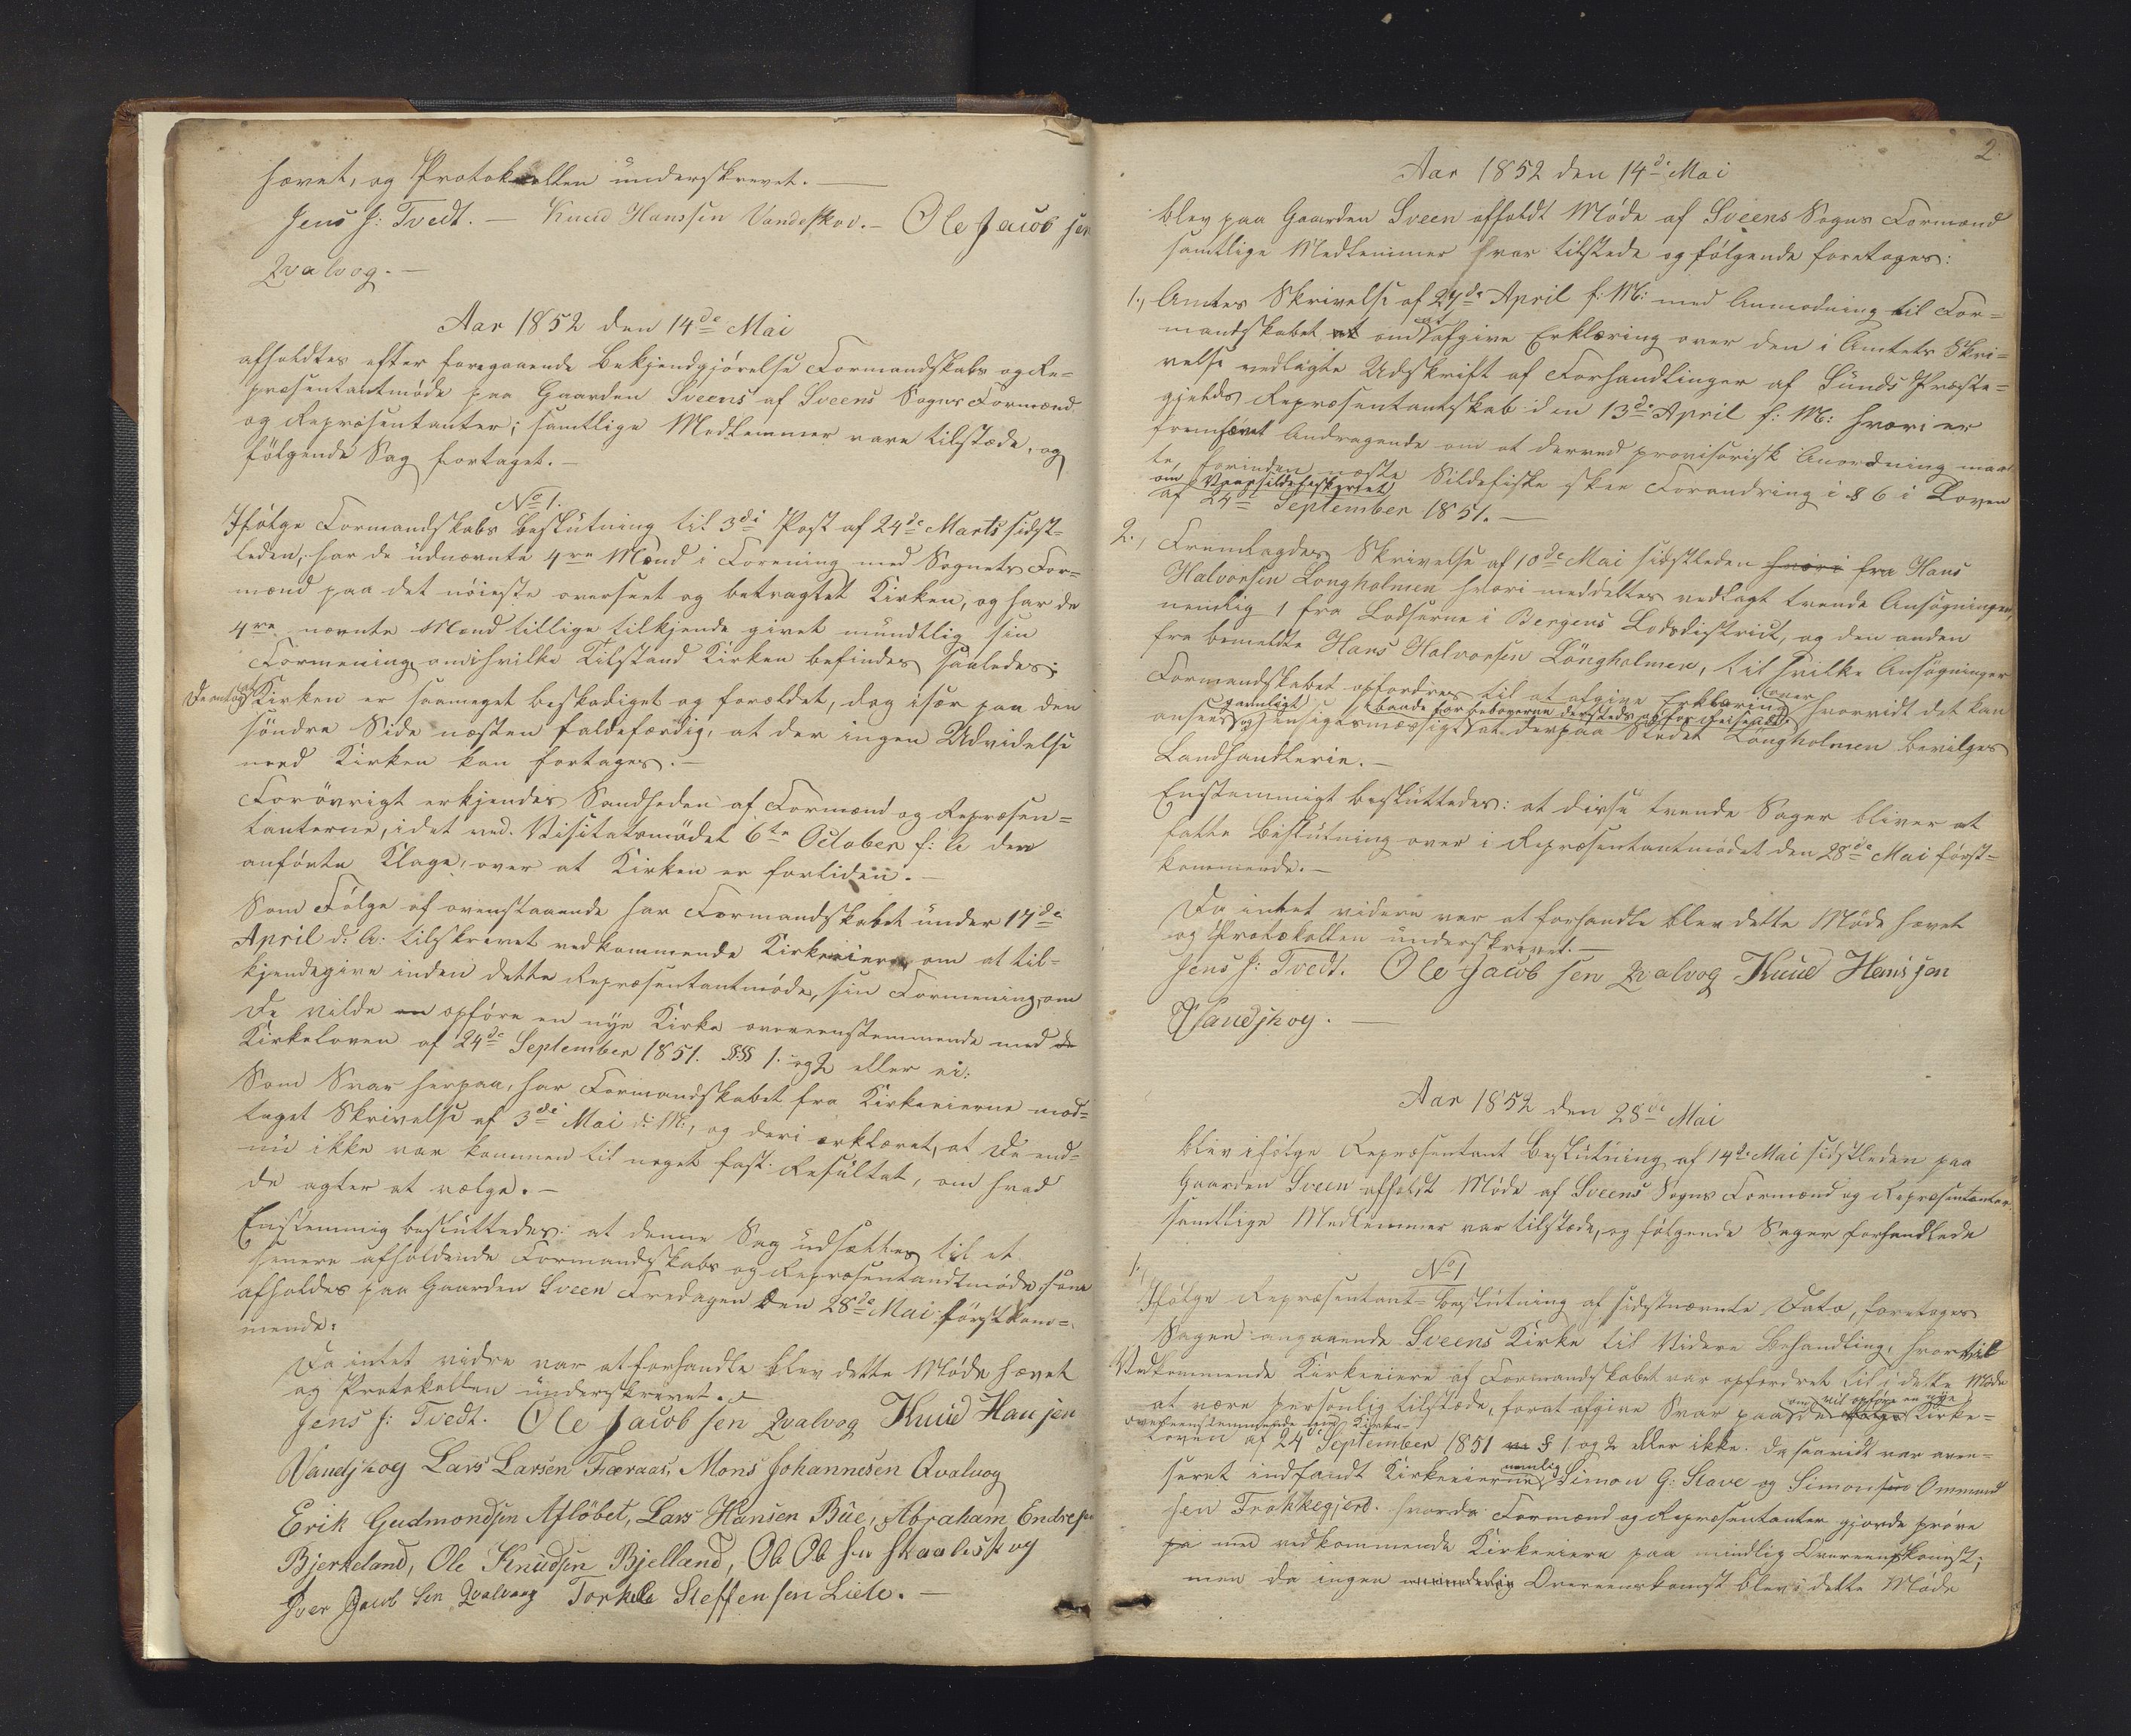 hævet, og Protokollen underskrevet. —
Jens J: Tvedt. — Knud Hanssen Vandeskov. — Ole Jacob sen
Qvalvog. —
Aar 1852 den 14de Mai
afholdtes efter foregaaende Bekjendgjørelse Formandskabs og Re=
præsentantmøde paa Gaarden Sveens af Sveens Sogns Formænd
og Repræsentanter; samtlige Medlemmer vare tilstæde, og
følgende Sag fortaget. —
No 1.
Ifølge Formandskabs Beslutning til 3die Post af 24de Marts sidst=
leden, har de udnævnte 4re Mænd i Forening med Sognets For=
mænd paa det nøieste overseet og betragtet Kirken, og har de
4re nævnte Mænd tillige tilkjende givet mundtlig sin
Formening om i hvilke Tilstand Kirken befindes saaledes:
De antog at Kirken er saameget beskadiget og forældet, dog især paa den
søndre Side næsten faldefærdig, at der ingen Udvidelse
med Kirken kan fortages. —
Forøvrigt erkjendes Sandheden af Formænd og Repræsen=
tanterne, idet ved Visitatsmødet 6te October f: A den
anførte Klage, over at Kirken er forliden. —
Som Følge af ovenstaaende har Formandskabet under 17de
April d: A: tilskrevet vedkommende Kirkeeiere, om at til=
kjendegive inden dette Repræsentantmøde, sin Formening, om
De vilde en opføre en nye Kirke overeenstemmende med de
Kirkeloven af 24de September 1851. §§§ 1. og 2 eller ei:
Som Svar herpaa, har Formandskabet fra Kirkeeierne mod=
taget Skrivelse af 3die Mai d: M:, og deri erklæret, at De end=
nu ikke var kommen til noget fast Resultat, om hvad
de agter at vælge. —
Enstemmig besluttedes: at denne Sag udsættes til et
senere afholdende Formandskabs og Repræsentandtmøde, som
afholdes paa Gaarden Sveen Fredagen den 28de Mai førstkom=
mende:
Da intet vidre var at forhandle blev dette Møde hævet
og Protokollen underskrevet. —
Jens J: Tvedt. Ole Jacob sen Qvalvog Knud Hansen
Vandskog Lars Larsen Færaas, Mons Johannesen Qvalvog
Erik Gudmondsen Afløbet, Lars Hansen Bue, Abraham Endresen
Bjerkeland, Ole Knudsen Bjelland, Ole Olsen
Iver Jacob Sen Qvalvaag Torkele Steffen sen Liele. —
2.
Aar 1852 den 14de Mai
blev paa Gaarden Sveen afholdt Møde af Sveens Sogns Formænd
samtlige Medlemmer hvar tilstede og følgende foretoges:
1., Amtes Skrivelse af 27de April f: M: med Anmodning til For=
mandskabet at om at afgive Erklæring over den i Amtets Skri=
velse vedlagte Udskrift af Forhandlinger af Sunds Præste=
gjelds Repræsentantskab den 13de April f: M: hvori er
fremhævet Andragende om at derved provisorisk Anordning maat
te, forinden næste Sildefiske skee Forandring i § 6 i Loven
om Vaarsildefiskeriet
af 24de September 1851. —
2., Fremlagdes Skrivelse af 10de Mai sidstleden hvori fra Hans
Halvorsen Longholmen hvori meddeltes vedlagt tvende Ansøgninger,
nemlig 1 fra Lodserne i Bergens Lodsdistrict, og den anden
fra bemeldte Hans Halvorsen Longholmen, til hvilke Ansøgninger
Formandskabet opfordres til at afgive Erklæring over hvorvidt det kan
gavnligt baade for beboerne dersteds og for Reisende
ansees og hensigtsmæssigt at der paa Stedet Longholmen bevilges
Landhandlerie. —
Enstemmigt besluttedes: at disse tvende Sager bliver at
fatte Beslutning over i Repræsentantmødet den 28de Mai først=
kommende. —
Da intet videre var at forhandle blev dette Møde hævet
og Protokollen underskrevet. —
Jens J: Tvedt. Ole Jacob sen Qvalvog Knud Hansen
Vandskog. —
Aar 1852 den 28de Mai
blev ifølge Repræsentant Beslutning af 14de Mai sidstleden paa
Gaarden Sveen afholdt Møde af Sveens Sogns Formænd og Repræsentanter
samtlige Medlemmer var tilstæde, og følgende Sager forhandlede
1., No 1
Ifølge Repræsentant=Beslutning af sidstnævnte Dato, foretoges
Sagen angaaende Sveens Kirke til Videre Behandling, hvortil
Vedkommende Kirkeeiere af Formandskabet var opfordret til i dette Møde
at være personlig tilstæde, forat afgive Svar paa om de vil opføre en nye Kirke=
overeenstemmende Kirke-
Loven af 24de September 1851 § 1. og 2 eller ikke. Da saavidt var aver=
seret indfandt Kirkeeierne nemlig Simon G: Stave og Simonsen Ommund
sen Frøkkegjerd. hvorda Formænd og Repræsentanter gjorde prøve
pa med vedkommende Kirkeeiere paa mindlig Overeenskomst;
men da ingen mindelig Overeenskomst blev i dette Møde